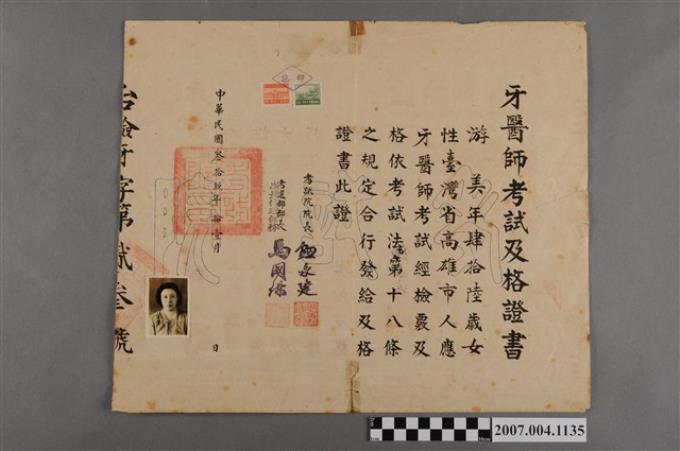 牙醫師考試及格證書
游 美年肆拾陸歲女
性臺灣省高雄市人應
牙醫師考試經檢覈及
格依考試法第十八條
之規定合行發給及格
證書此證
考試院院長
考選部部長
馬國
中華民國叁拾玖年拾壹月
日
台檢牙字第貳叁號
2007.004.1135